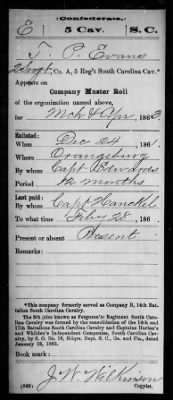 (Confederate.)
E 5 Cav. S. C.
T. P. Evans
Co. A, 5 Reg't South Carolina Cav.*
Appears on
Company Muster Roll
of the organization named above,
for Mch & Apr, 186
Enlisted:
When Dec 24, 186
Where Orangeburg
By whom Capt Edwards
Period 12 months
Last paid:
By whom Capt Hanckel
To what time Feby 28, 186
Present or absent Present
Remarks:
*This company formerly served as Company B, 14th Battalion South Carolina Cavalry.
The 5th (also known as Ferguson's) Regiment South Carolina Cavalry was formed by the consolidation of the 14th and 17th Battalions South Carolina Cavalry and Captains Harlan's and Whilden's Independent Companies, South Carolina Cavalry, by S. O. No. 18, Hdqrs. Dept. S. C., Ga. and Fla., dated January 18, 1863.
Book mark:
J. W. Wilkinson
(642) Copyist.